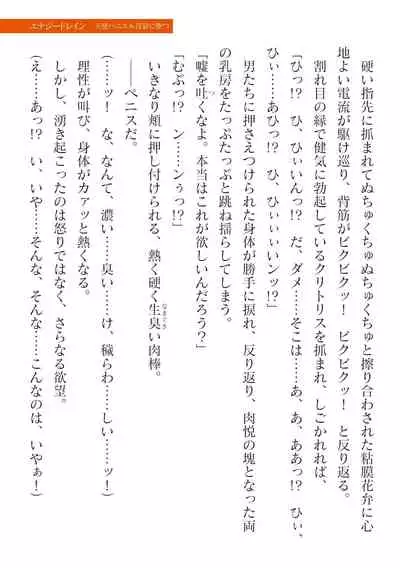 エナジードレイン 天使ハニエル淫辱に堕つ
硬い指先に抓まれてぬちゅくちゅぬちゅくちゅと擦り合わされた粘膜花弁に心
地よい電流が駆け巡り、背筋がビクビクッ！ ビクビクッ！ と反り返る。
割れ目の縁で健気に勃起しているクリトリスを抓まれ、しごかれれば、
「ひっ!? ひ、ひぃぃんっ!? だ、ダメ……そこは……あ、あ、ああっ!? ひぃ、
ひぃ……あひっ!? ひ、ひぃぃぃいンッ!?」
男たちに押さえつけられた身体が勝手に捩れ、反り返り、肉悦の塊となった両
の乳房をたっぷたっぷと跳ね揺らしてしまう。
「嘘を吐くなよ。本当はこれが欲しいんだろう？」
「むぷっ!? ン……ンぅっ!?」
いきなり頬に押し付けられる、熱く硬く生臭い肉棒。
――ペニスだ。
（……ッ！ な、なんて、濃い……臭い……け、穢らわ……しい……ッ！）
理性が叫び、身体がカァッと熱くなる。
しかし、湧き起こったのは怒りではなく、さらなる欲望。
（え……あっ!? い、いや……そんな、そんな……こんなのは、いやぁ！）